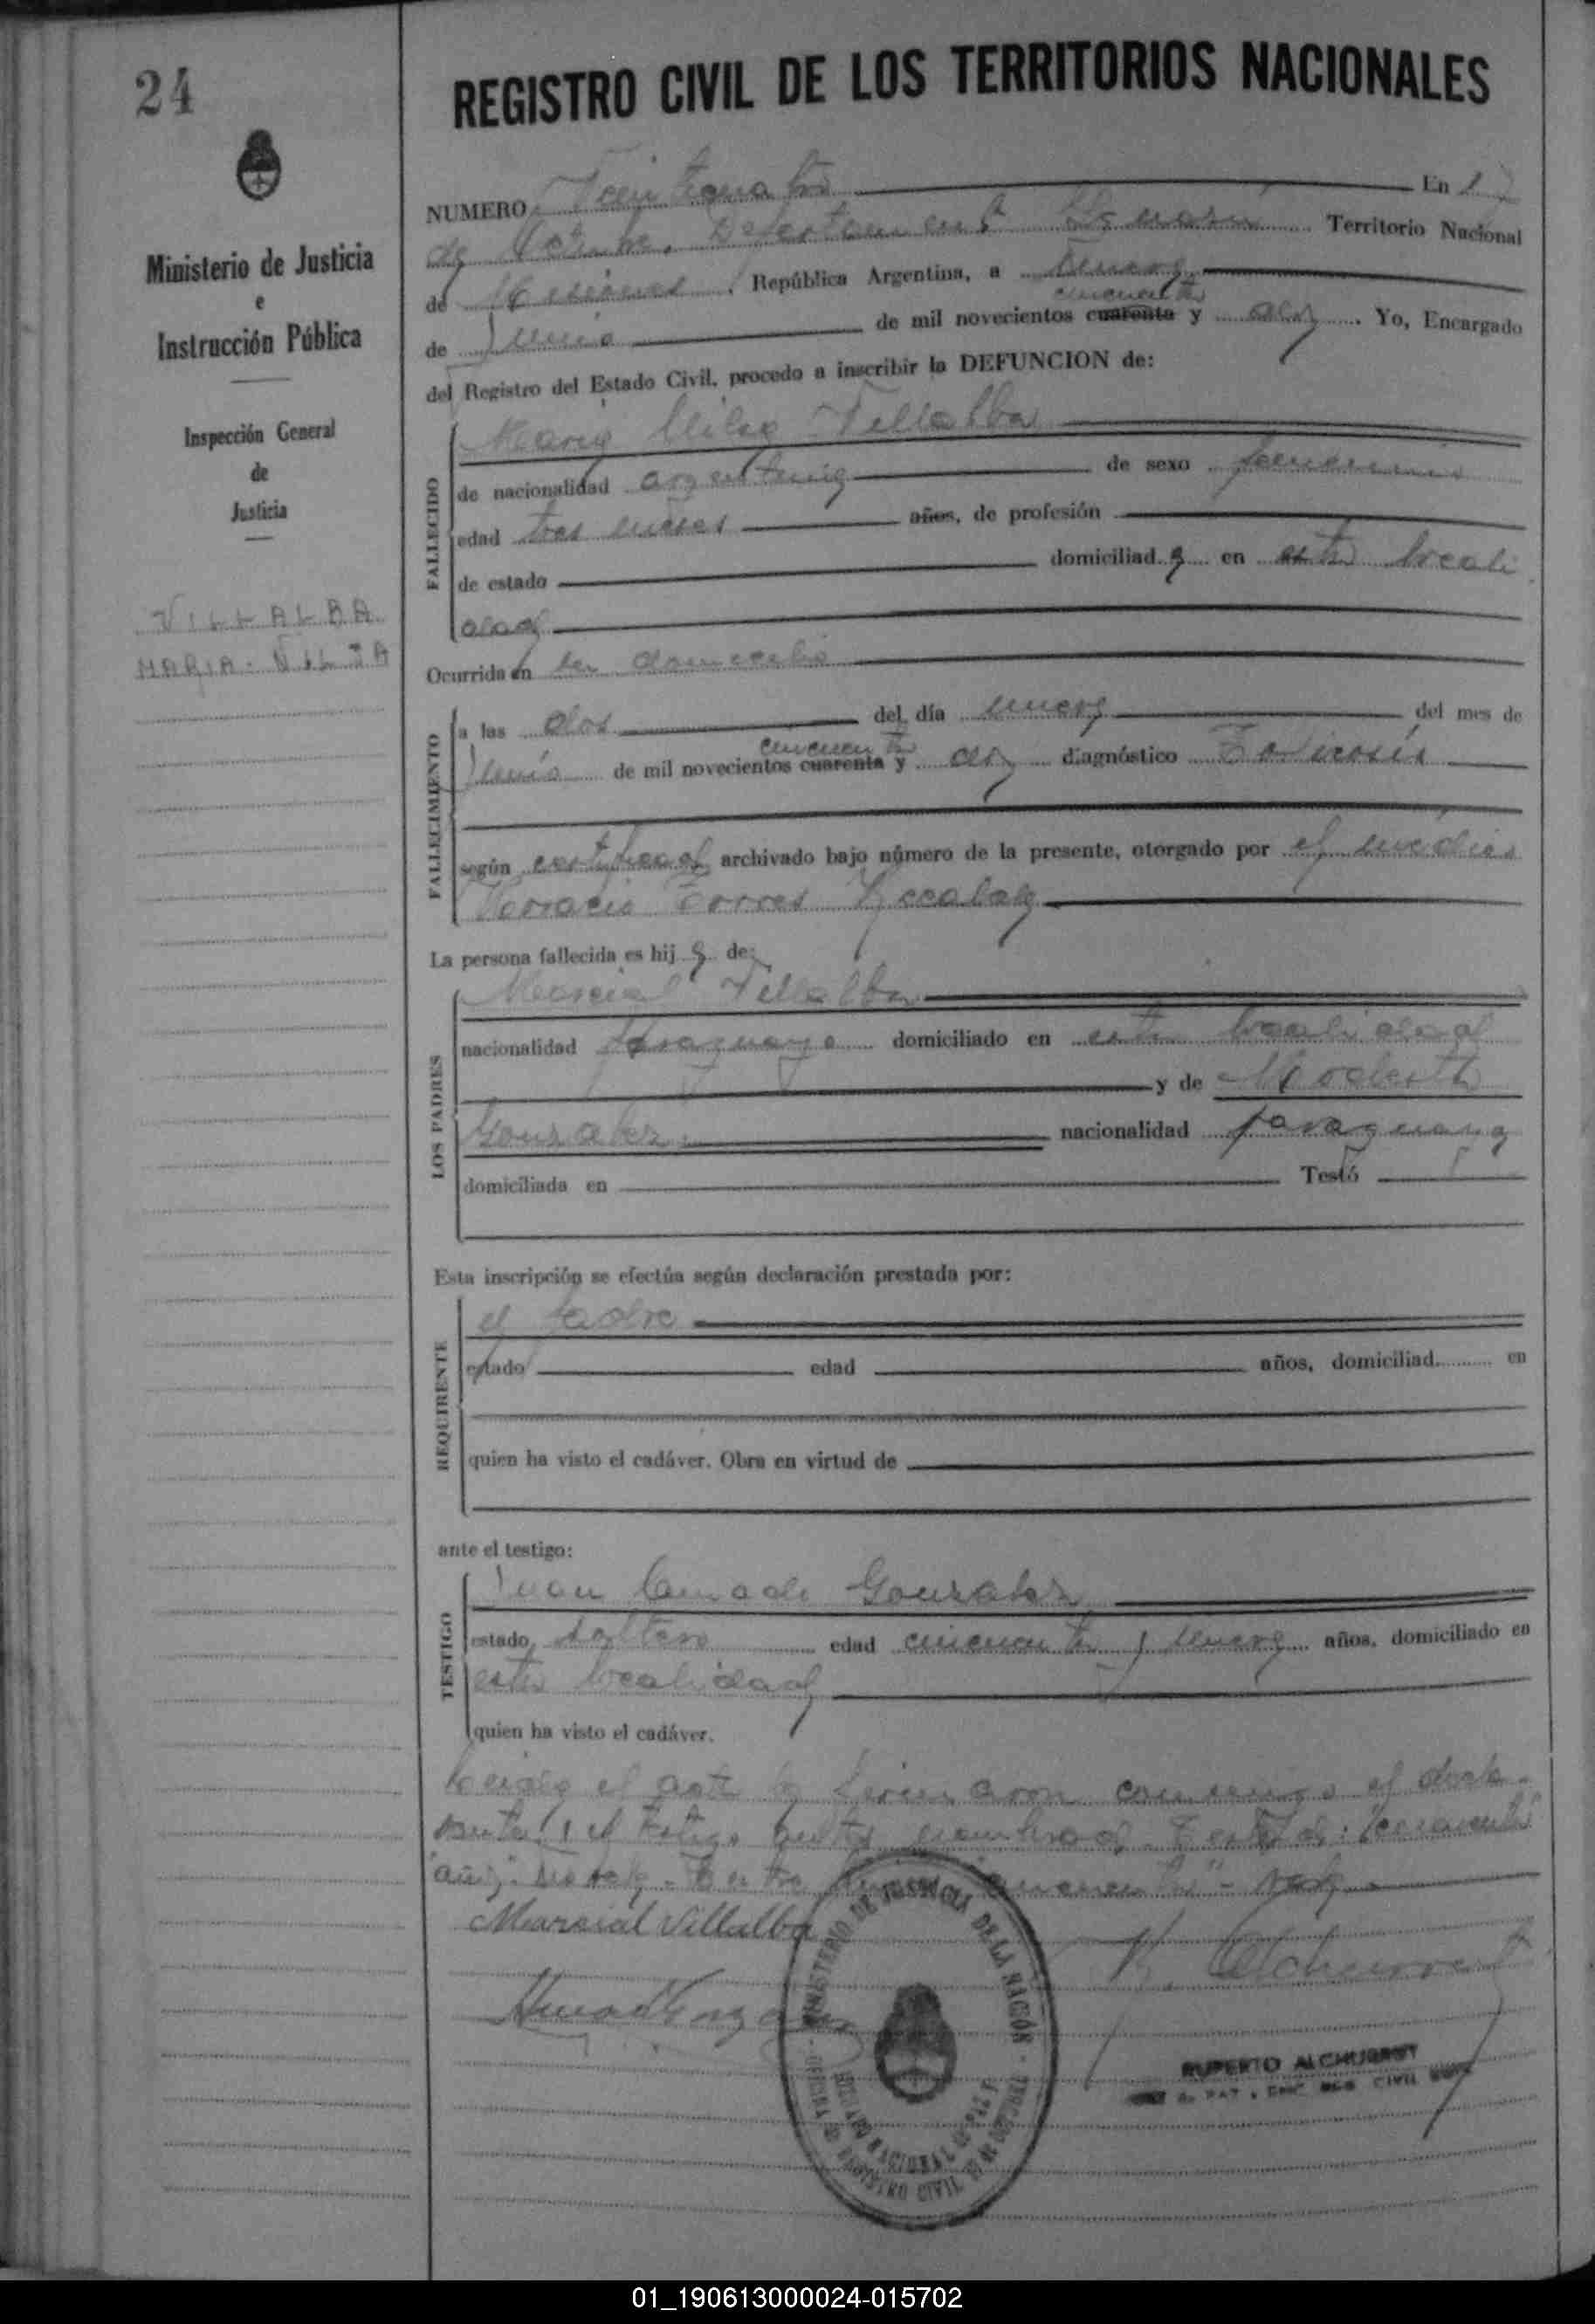 24
REGISTRO CIVIL DE LOS TERRITORIOS NACIONALES
Ministerio de Justicia
e
Instrucción Pública
Inspección General
de
Justicia
VILLALBA
MARIA
NUMERO Veinticuatro En 17
de Octubre, Departamento Territorio Nacional
de Misiones, República Argentina, a nueve
cincuenta
de Junio de mil novecientos cuarenta y dos. Yo, Encargado
del Registro del Estado Civil, procedo a inscribir la DEFUNCION de:
FALLECIDO
Maria Villalba
de nacionalidad argentina de sexo femenino
edad tres meses años, de profesión
de estado domiciliada en esta locali
dad
Ocurrida en su domicilio
FALLECIMIENTO
a las dos del día nueve del mes de
cincuenta
Junio de mil novecientos cuarenta y dos diagnóstico Toxicosis
según certificado archivado bajo número de la presente, otorgado por el médico
Horacio Torres
La persona fallecida es hija de:
LOS PADRES
Marcial Villalba
nacionalidad paraguayo domiciliado en esta localidad
y de Modesta
Gonzalez nacionalidad paraguaya
domiciliada en Testó
Esta inscripción se efectúa según declaración prestada por:
REQUIRENTE
el padre
estado edad años, domiciliad en
quien ha visto el cadáver. Obra en virtud de
ante el testigo:
TESTIGO
Juan Gonzalez
estado soltero edad cincuenta y nueve años, domiciliado en
esta localidad
quien ha visto el cadáver.
Leida el acta la firmaron conmigo el decla-
rante y el testigo antes nombrado. Testado: "cuarenta"
"años". No vale. Entre lineas "cincuenta" - Vale.
Marcial Villalba
R. Alchurrut
MINISTERIO DE JUSTICIA DE LA NACIÓN
REGISTRO CIVIL
RUPERTO ALCHURRUT
REG CIVIL
01_190613000024-015702